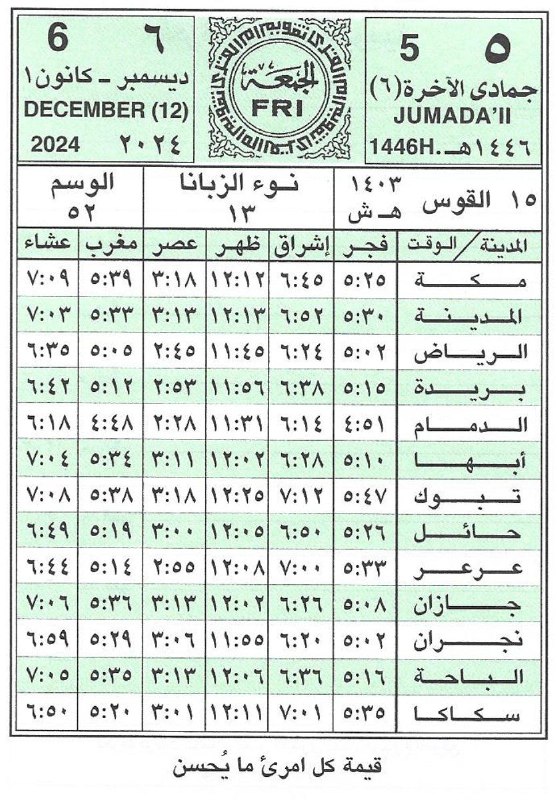 ٥ 5
جمادى الآخرة (٦)
JUMADA'II
١٤٤٦هـ 1446H.
الجمعة
FRI
6 ٦
ديسمبر - كانون ١
DECEMBER (12)
2024 ٢٠٢٤
١٥ القوس ١٤٠٣ هـ ش
نوء الزبانا ١٣
الوسم ٥٢
المدينة / الوقت فجر إشراق ظهر عصر مغرب عشاء
مكة ٥:٢٥ ٦:٤٥ ١٢:١٢ ٣:١٨ ٥:٣٩ ٧:٠٩
المدينة ٥:٣٠ ٦:٥٢ ١٢:١٣ ٣:١٣ ٥:٣٣ ٧:٠٣
الرياض ٥:٠٢ ٦:٢٤ ١١:٤٥ ٢:٤٥ ٥:٠٥ ٦:٣٥
بريدة ٥:١٥ ٦:٣٨ ١١:٥٦ ٢:٥٣ ٥:١٢ ٦:٤٢
الدمام ٤:٥١ ٦:١٤ ١١:٣١ ٢:٢٨ ٤:٤٨ ٦:١٨
أبها ٥:١٠ ٦:٢٨ ١٢:٠٢ ٣:١١ ٥:٣٤ ٧:٠٤
تبوك ٥:٤٧ ٧:١٢ ١٢:٢٥ ٣:١٨ ٥:٣٨ ٧:٠٨
حائل ٥:٢٦ ٦:٥٠ ١٢:٠٥ ٣:٠٠ ٥:١٩ ٦:٤٩
عرعر ٥:٣٣ ٧:٠٠ ١٢:٠٨ ٢:٥٥ ٥:١٤ ٦:٤٤
جازان ٥:٠٨ ٦:٢٦ ١٢:٠٢ ٣:١٣ ٥:٣٦ ٧:٠٦
نجران ٥:٠٢ ٦:٢٠ ١١:٥٥ ٣:٠٦ ٥:٢٩ ٦:٥٩
الباحة ٥:١٦ ٦:٣٦ ١٢:٠٦ ٣:١٣ ٥:٣٥ ٧:٠٥
سكاكا ٥:٣٥ ٧:٠١ ١٢:١١ ٣:٠١ ٥:٢٠ ٦:٥٠
قيمة كل امرئ ما يُحسن